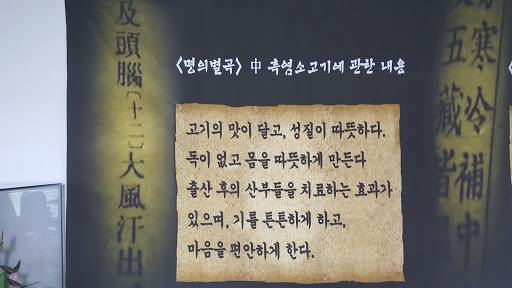 及頭腦[十二]大風汗出
<명의별곡> 中 흑염소고기에 관한 내용
고기의 맛이 달고, 성질이 따뜻하다.
독이 없고 몸을 따뜻하게 만든다
출산 후의 산부들을 치료하는 효과가
있으며, 기를 튼튼하게 하고,
마음을 편안하게 한다.
寒冷補中
五藏皆